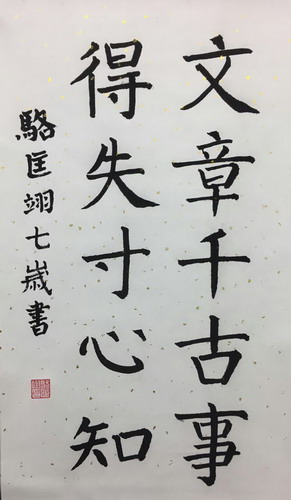 文章千古事
得失寸心知
駱匡翊七歲書